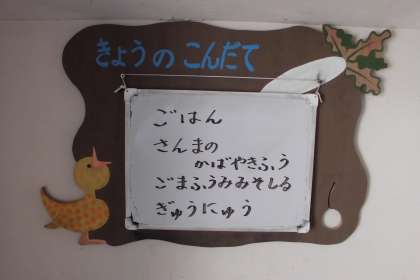 きょうの こんだて
ごはん
さんまの
かばやきふう
ごまふうみみそしる
ぎゅうにゅう